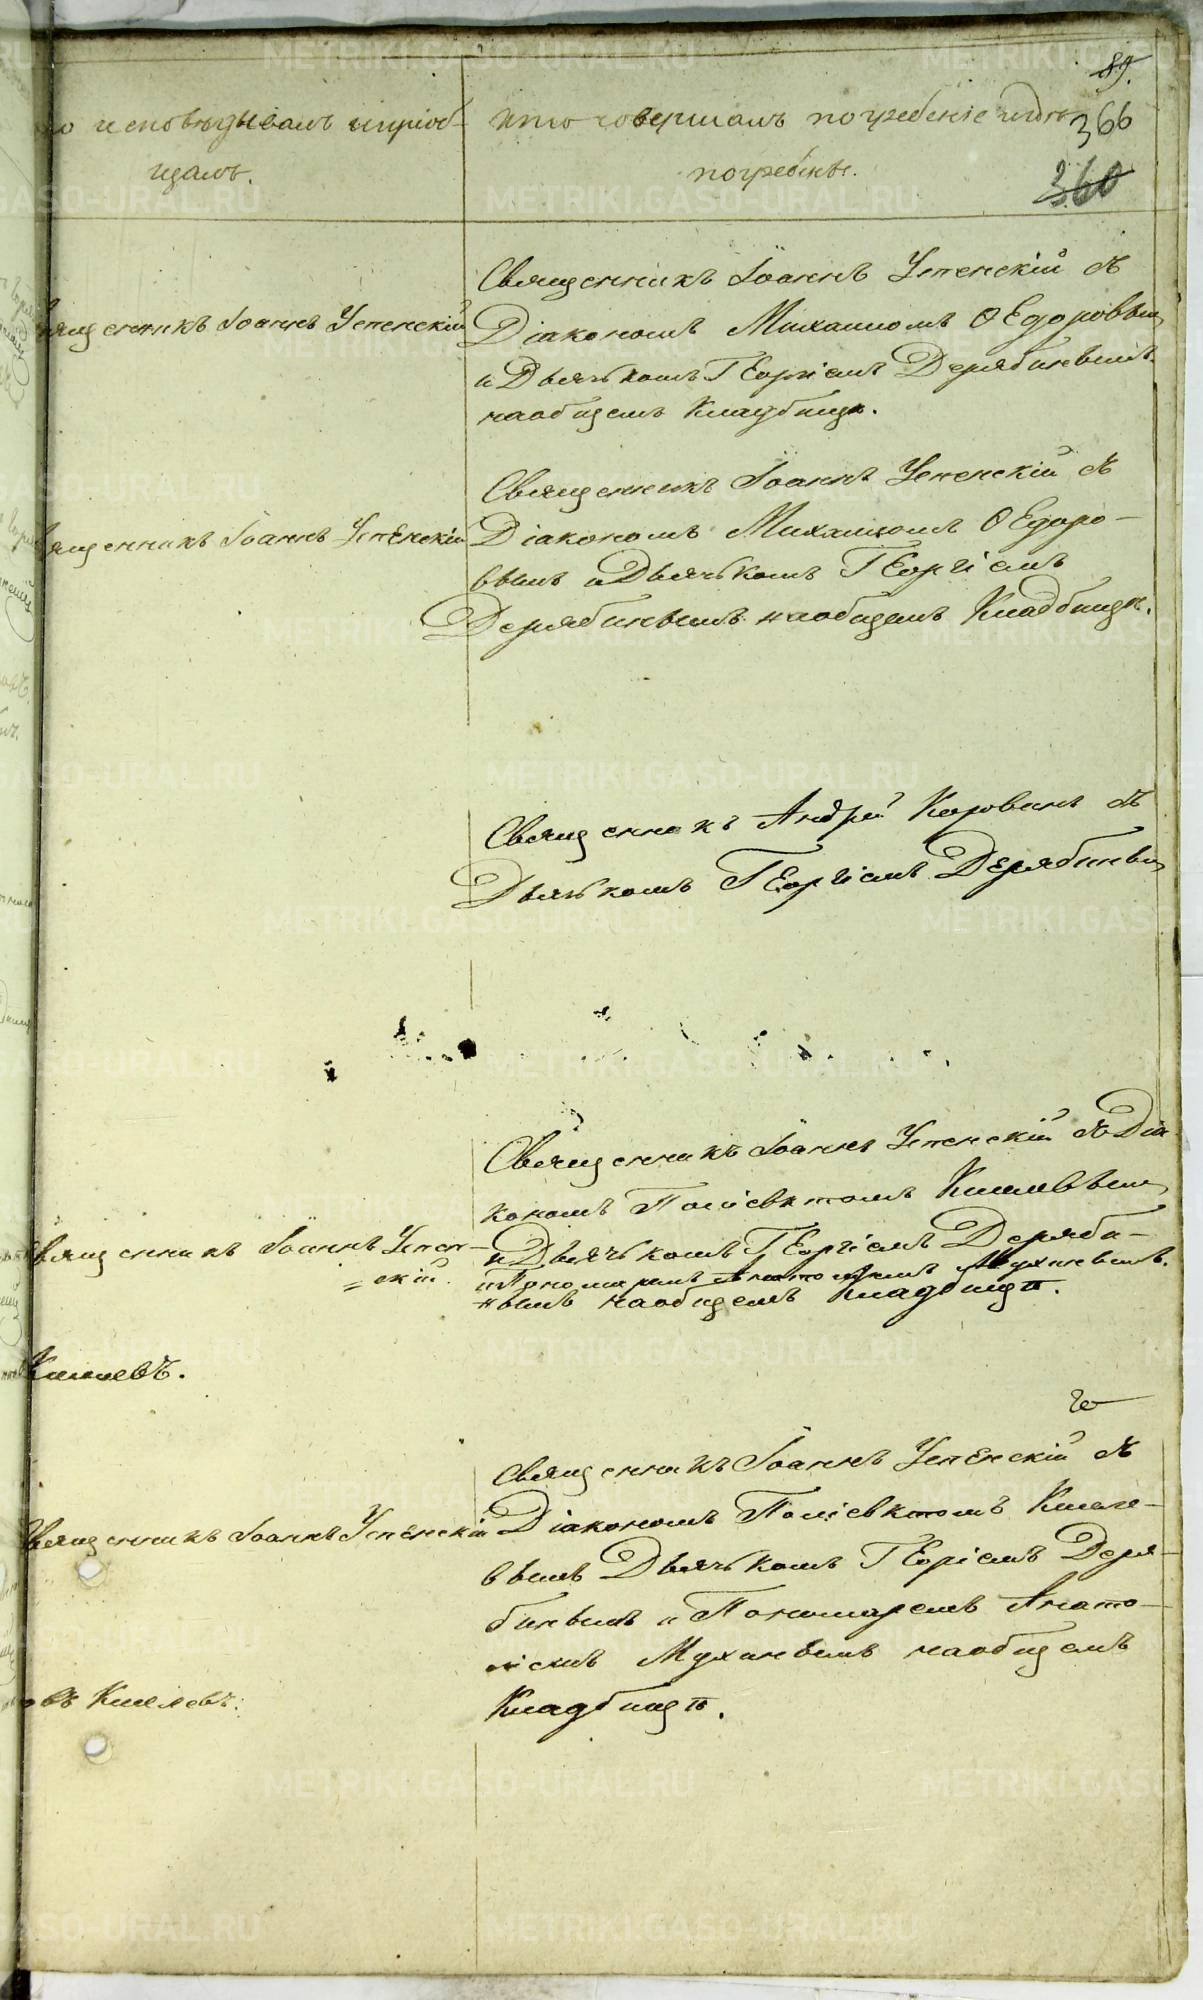 89.
366
360
исповѣдывалъ и пріоб-
щалъ.
Кто совершалъ погребеніе и гдѣ
погребены.
Священникъ Іоаннъ Успенскій
Священникъ Іоаннъ Успенскій съ
Діакономъ Михаиломъ Ѳедоровым
и Дьячкомъ Георгіемъ Дерябинымъ
на общемъ Кладбищѣ.
Священникъ Іоаннъ Успенскій
Священникъ Іоаннъ Успенскій съ
Діакономъ Михаиломъ Ѳедоро-
вымъ и Дьячкомъ Георгіемъ
Дерябинымъ на общемъ Кладбищѣ.
Священникъ Андрей Коровинъ съ
Дьячкомъ Георгіемъ Дерябины
Священникъ Іоаннъ Успен-
скій.
Киселевъ.
Священникъ Іоаннъ Успенскій съ Діа
кономъ Поліевктомъ Киселевым
и Дьячкомъ Георгіемъ Деряби-
и Пономаремъ Анатоліемъ Мухинымъ.
нымъ на общемъ Кладбищѣ.
Священникъ Іоаннъ Успенскій
въ Киселевъ.
Священникъ Іоаннъ Успенскій съ
Діакономъ Поліевктомъ Киселе-
вымъ Дьячкомъ Георгіемъ Деря-
бинымъ и Пономаремъ Анато-
ліемъ Мухинымъ на общемъ
Кладбищѣ.
METRIKI.GASO-URAL.RU